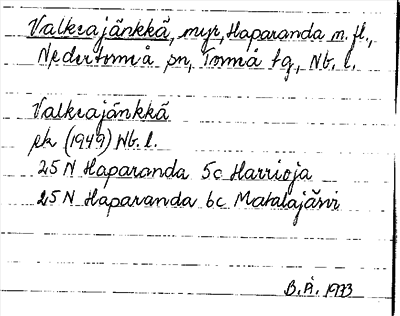 Valkeajänkkä, myr, Haparanda m. fl.,
Nedertorneå sn, Torneå tg, Nb. l.
Valkeajänkkä
ek (1949) Nb. l.
25 N Haparanda 5c Harrioja
25 N Haparanda 6c Matalajärvi
B. Å. 1973